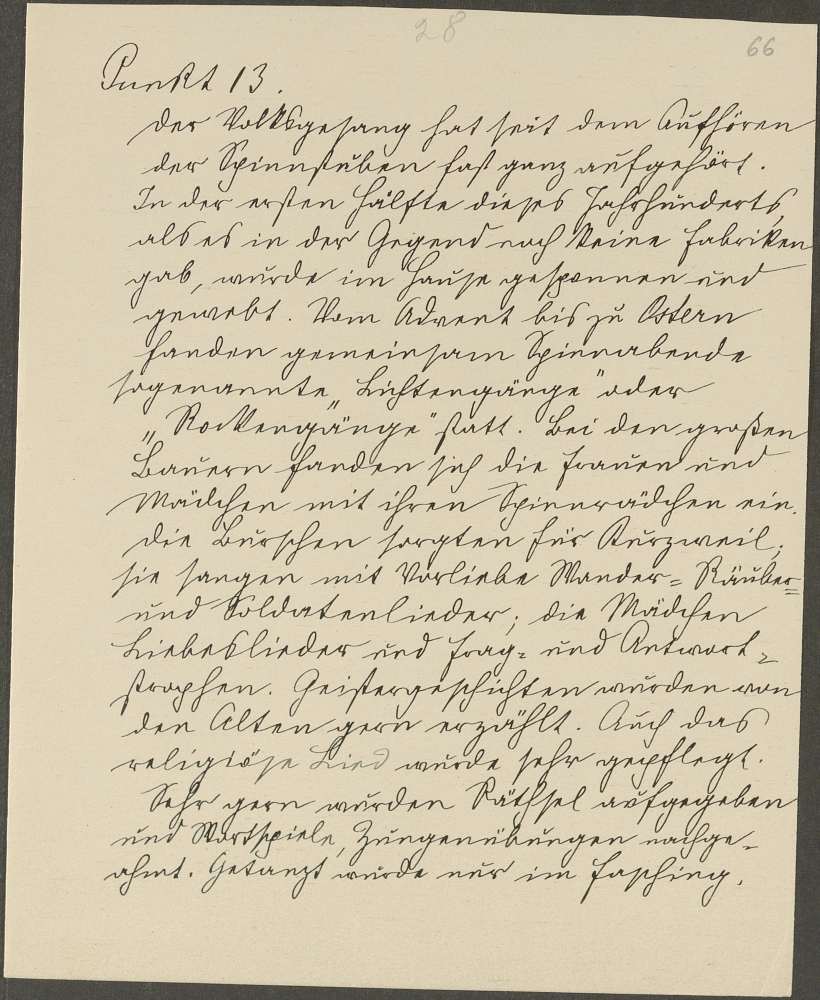 28
66
Punkt 13.
Der Volksgesang hat seit dem Aufhören
der Spinnstuben fast ganz aufgehört.
In der ersten Hälfte dieses Jahrhunderts,
als es in der Gegend noch keine Fabriken
gab, wurde im Hause gesponnen und
gewebt. Vom Advent bis zu Ostern
fanden gemeinsam Spinnabende
sogenannte „Lichtengänge" oder
„Rockengänge" statt. Bei den großen
Bauern fanden sich die Frauen und
Mädchen mit ihren Spinnrädchen ein.
Die Burschen sorgten für Kurzweil;
sie sangen mit Vorliebe Wander= Räuber=
und Soldatenlieder; die Mädchen
Liebeslieder und Frag= und Antwort=
strophen. Geistergeschichten wurden von
den Alten gern erzählt. Auch das
religiöse Lied wurde sehr gepflegt.
Sehr gern wurden Räthsel aufgegeben
und Wortspiele, Zungenübungen nachge=
ahmt. Getanzt wurde nur im Fasching.